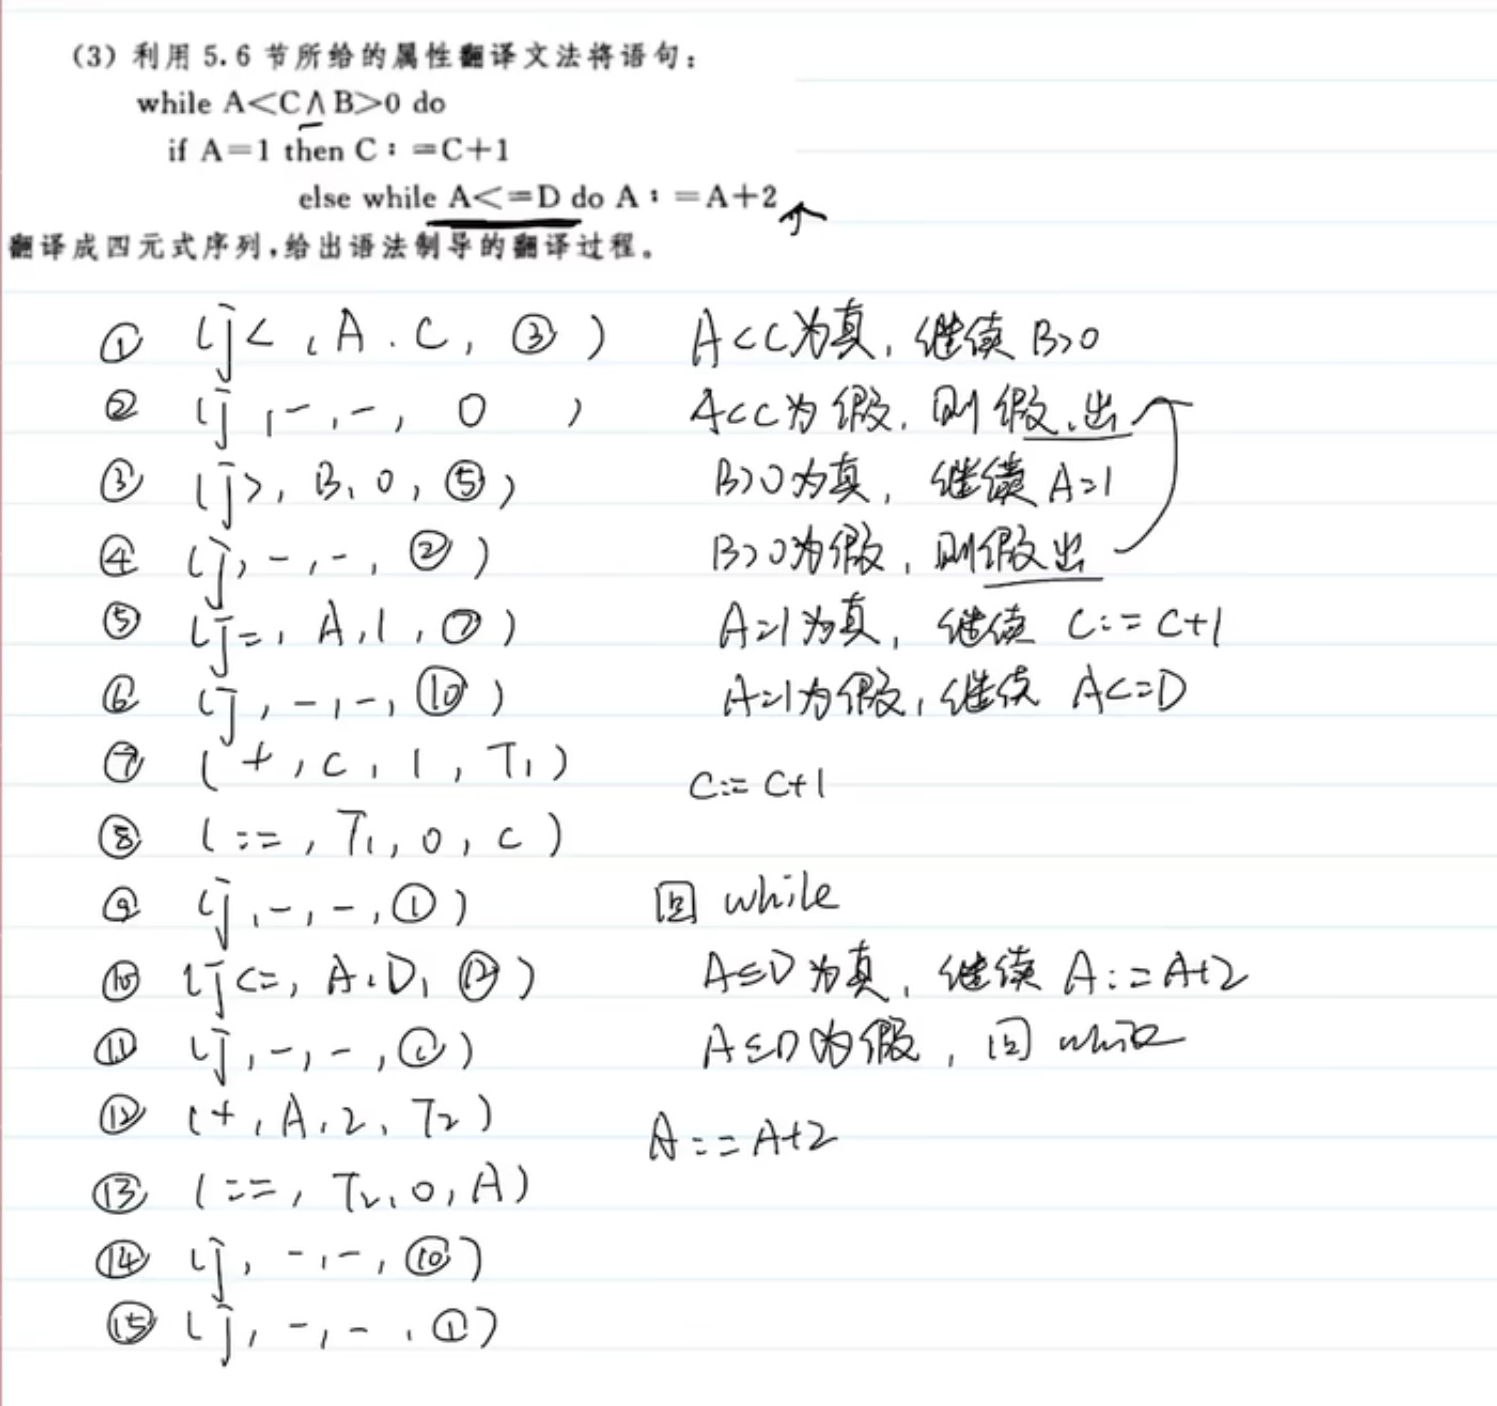 (3) 利用 5.6 节所给的属性翻译文法将语句:
while A<C∧B>0 do
if A=1 then C:=C+1
else while A<=D do A:=A+2
翻译成四元式序列,给出语法制导的翻译过程。
① (j<, A. C, ③) A<C为真, 继续 B>0
② (j, -, -, 0 ) A<C为假, 则假出
③ (j>, B, 0, ⑤) B>0为真, 继续 A=1
④ (j, -, -, ②) B>0为假, 则假出
⑤ (j=, A, 1, ⑦) A=1为真, 继续 C:=C+1
⑥ (j, -, -, ⑩) A=1为假, 继续 A<=D
⑦ (+, C, 1, T1) C:=C+1
⑧ (:=, T1, 0, C)
⑨ (j, -, -, ①) 回 while
⑩ (j<=, A, D, ⑫) A≤D为真, 继续 A:=A+2
⑪ (j, -, -, ①) A≤D为假, 回 while
⑫ (+, A, 2, T2) A:=A+2
⑬ (:=, T2, 0, A)
⑭ (j, -, -, ⑩)
⑮ (j, -, -, ①)